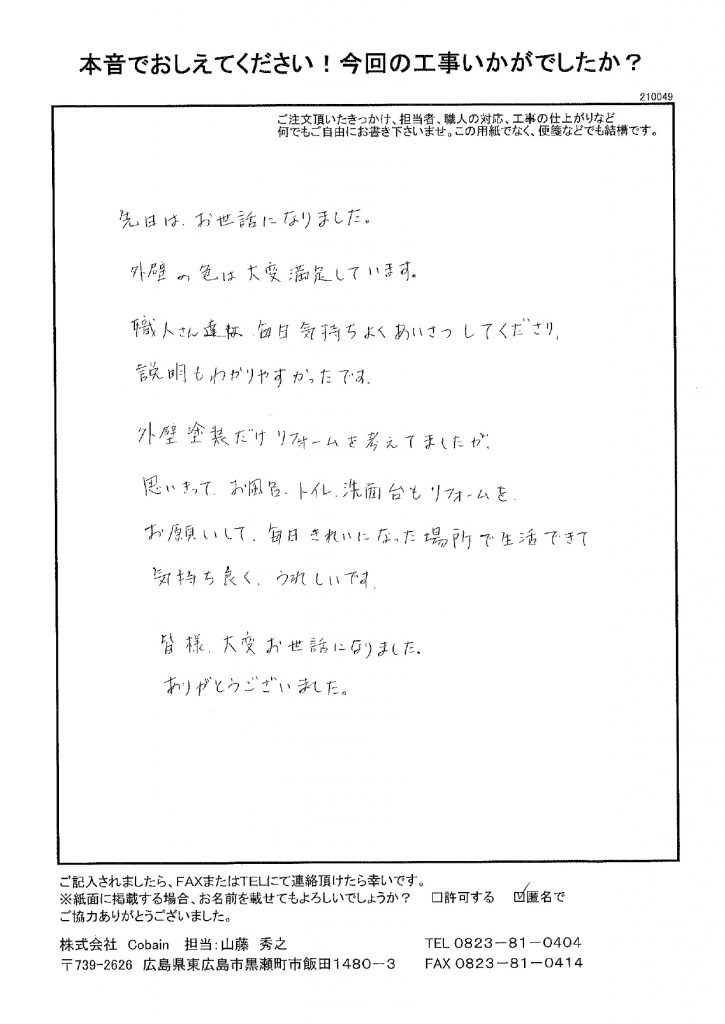 本音でおしえてください！今回の工事いかがでしたか？
210049
ご注文頂いたきっかけ、担当者、職人の対応、工事の仕上がりなど
何でもご自由にお書き下さいませ。この用紙でなく、便箋などでも結構です。
先日は、お世話になりました。
外壁の色は大変満足しています。
職人さん達は、毎日気持ちよくあいさつしてくださり、
説明もわかりやすかったです。
外壁塗装だけリフォームを考えてましたが、
思いきって、お風呂、トイレ、洗面台もリフォームを、
お願いして、毎日きれいになった場所で生活できて
気持ち良く、うれしいです。
皆様、大変お世話になりました。
ありがとうございました。
ご記入されましたら、FAXまたはTELにて連絡頂けたら幸いです。
※紙面に掲載する場合、お名前を載せてもよろしいでしょうか？　□許可する　☑匿名で
ご協力ありがとうございました。
株式会社　Cobain　担当：山藤　秀之　TEL 0823－81－0404
〒739-2626　広島県東広島市黒瀬町市飯田1480－3　FAX 0823－81－0414